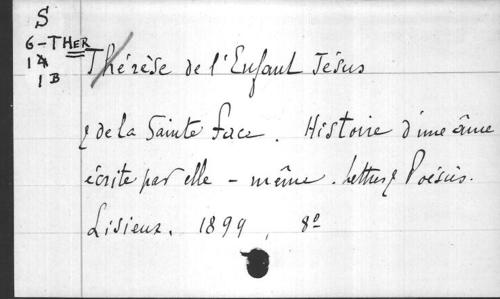 S
6-THER
14
1B
Thérèse de l'Enfant Jésus
& de la Sainte Face. Histoire d'une âme
écrite par elle-même. Lettres & Poésies.
Lisieux. 1899, 8º